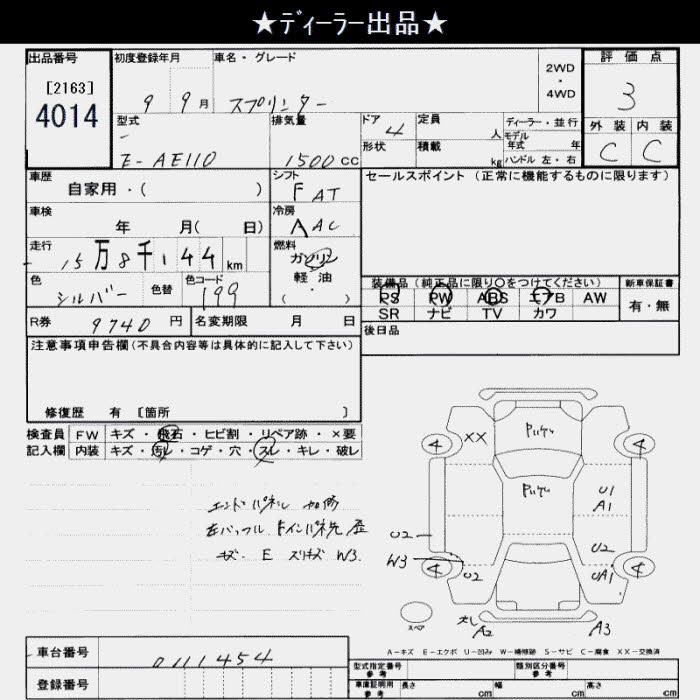 ★ディーラー出品★
出品番号 初度登録年月 車名・グレード 2WD・4WD 評価点
[2163] 9 9月 スプリンター 3
4014
型式 排気量 ドア 4 定員 人 ディーラー・並行 外装 内装
E-AE110 1500cc 形状 積載 kg モデル年式 年 C C
ハンドル 左・右
車歴 シフト セールスポイント(正常に機能するものに限ります)
自家用・( ) F AT
車検 冷房
年 月( 日) AAC
走行 燃料
15万8千144km ガソリン
軽油
・( )
色 色替 色コード 装備品(純正品に限り○をつけてください) 新車保証書
シルバー 199 PS PW ABS エアB AW 有・無
SR ナビ TV カワ
R券 9740円 名変期限 月 日 後日品
注意事項申告欄(不具合内容等は具体的に記入して下さい)
修復歴 有 [箇所 ]
検査員 FW キズ・飛石・ヒビ割・リペア跡・×要
記入欄 内装 キズ・汚レ・コゲ・穴・スレ・キレ・破レ
エンドパネル
キズ E スリキズ W3
XX
4 4
U1
A1
U2 U2
W3
4 U2 UA1 4
スペア A2 A3
A-キズ E-エクボ U-凹み W-補修跡 S-サビ C-腐食 XX-交換済
車台番号 0111454
登録番号
型式指定番号 参考 類別区分番号 参考
車庫証明用 参考 長さ cm 幅 cm 高さ cm